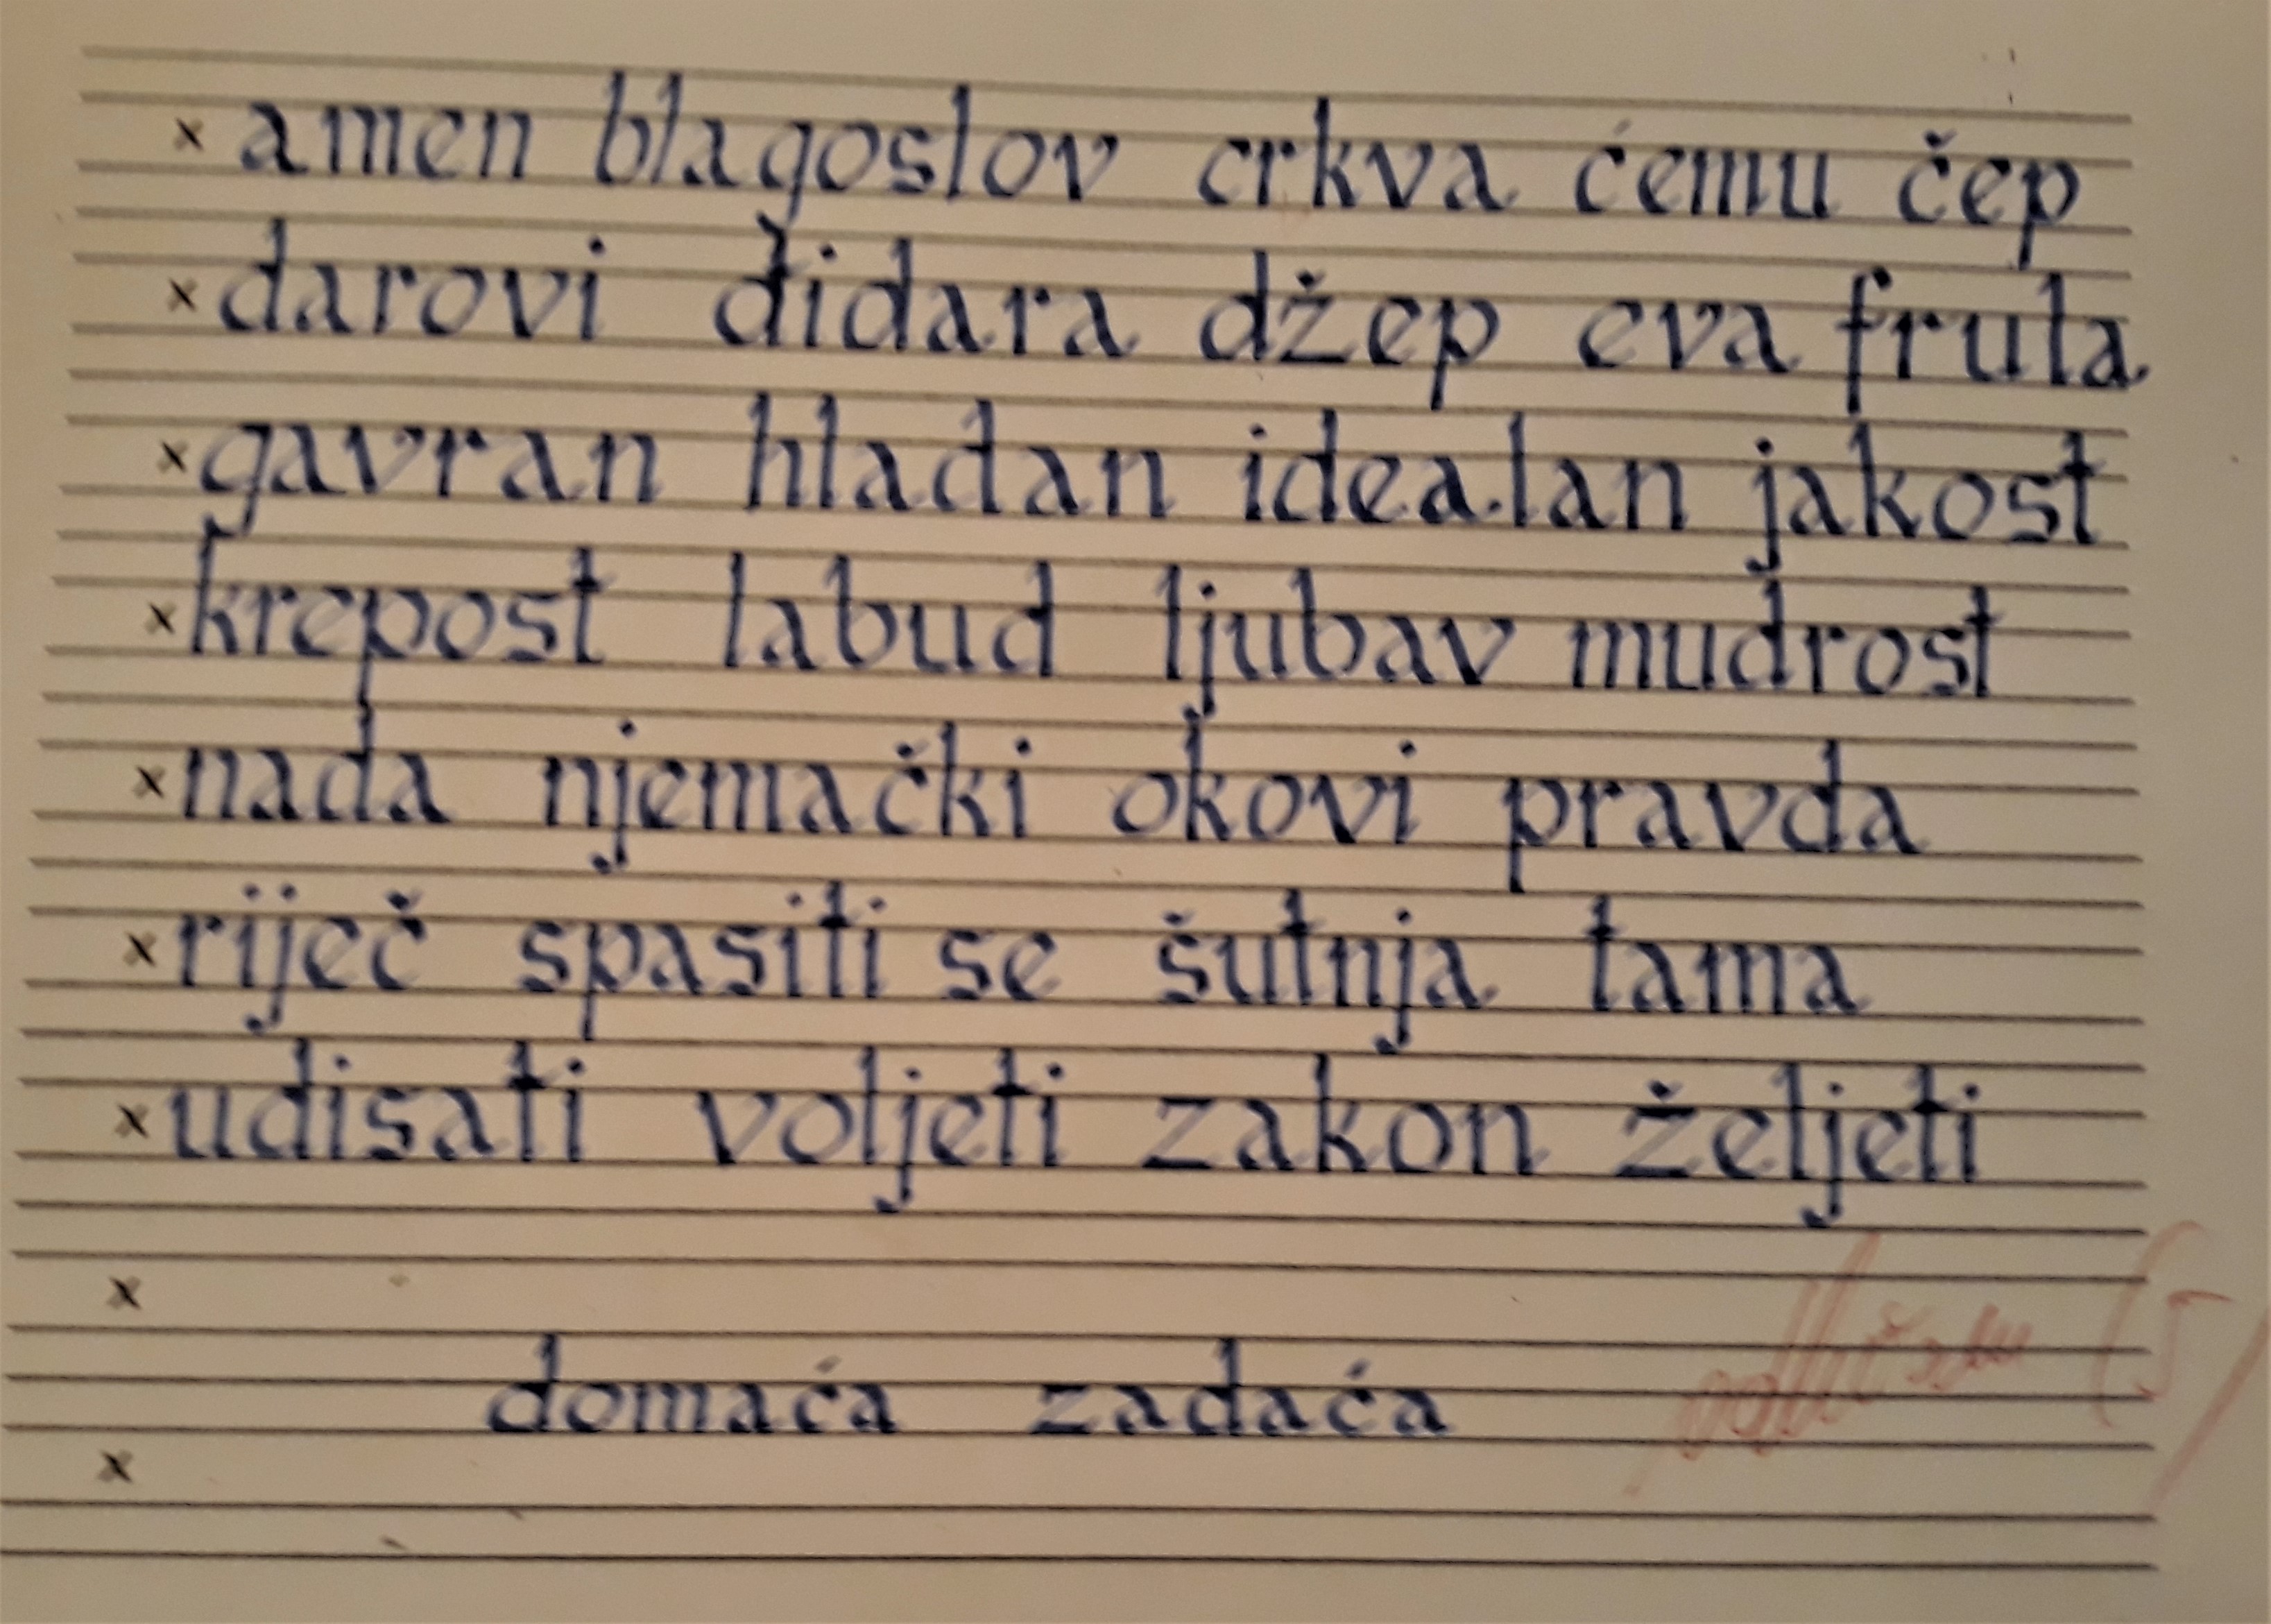 × amen blagoslov crkva ćemu čep
× darovi điđara džep eva frula
× gavran hladan idealan jakost
× krepost labud ljubav mudrost
× nada njemački okovi pravda
× riječ spasiti se šutnja tama
× udisati voljeti zakon željeti
×
domaća zadaća odličan (5)
×